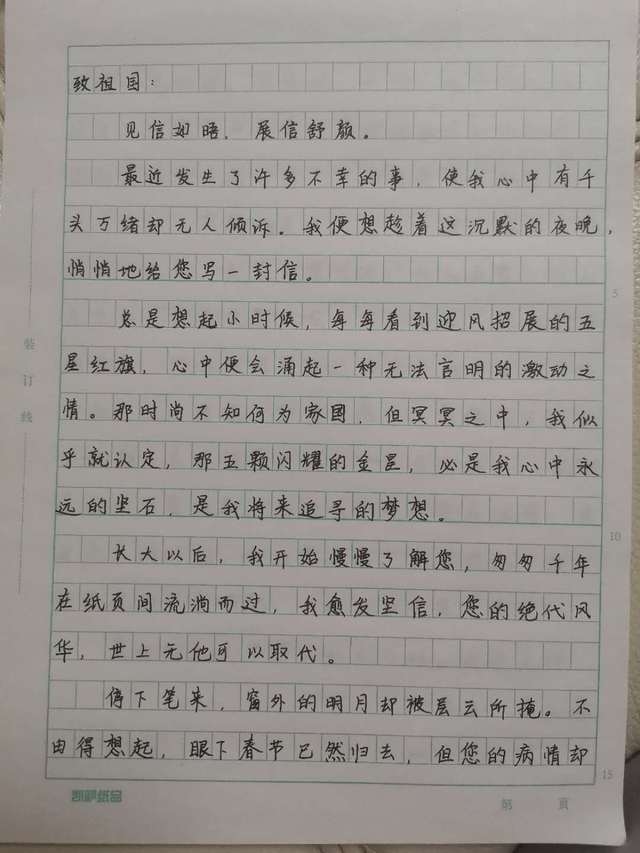 致祖国：
见信如晤，展信舒颜。
最近发生了许多不幸的事，使我心中有千
头万绪却无人倾诉。我便想趁着这沉默的夜晚，
悄悄地给您写一封信。
5
总是想起小时候，每每看到迎风招展的五
星红旗，心中便会涌起一种无法言明的激动之
情。那时尚不知何为家国，但冥冥之中，我似
乎就认定，那五颗闪耀的金星，必是我心中永
远的坚石，是我将来追寻的梦想。
10
长大以后，我开始慢慢了解您，匆匆千年
在纸页间流淌而过，我愈发坚信，您的绝代风
华，世上无他可以取代。
停下笔来，窗外的明月却被层云所掩。不
由得想起，眼下春节已然归去，但您的病情却
15
装订线
纸品
第 页